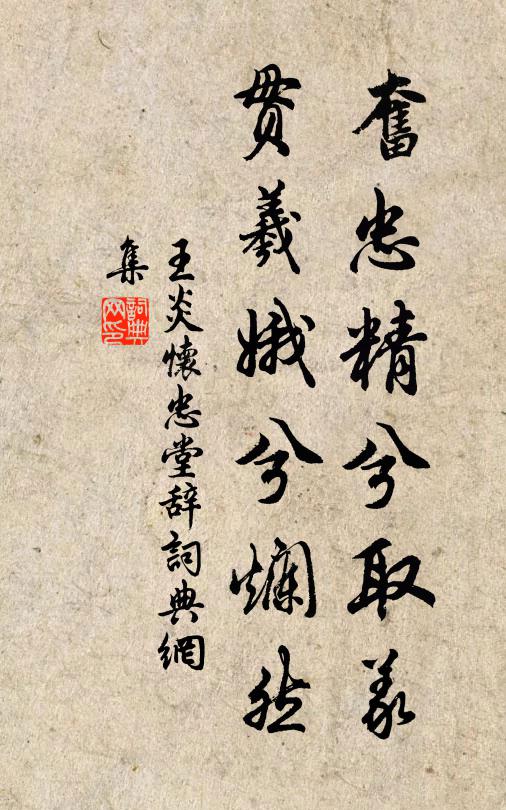 奮忠精兮取義
貫羲娥兮爛然
王炎懷忠堂辞詞典網
集
詞典
网印